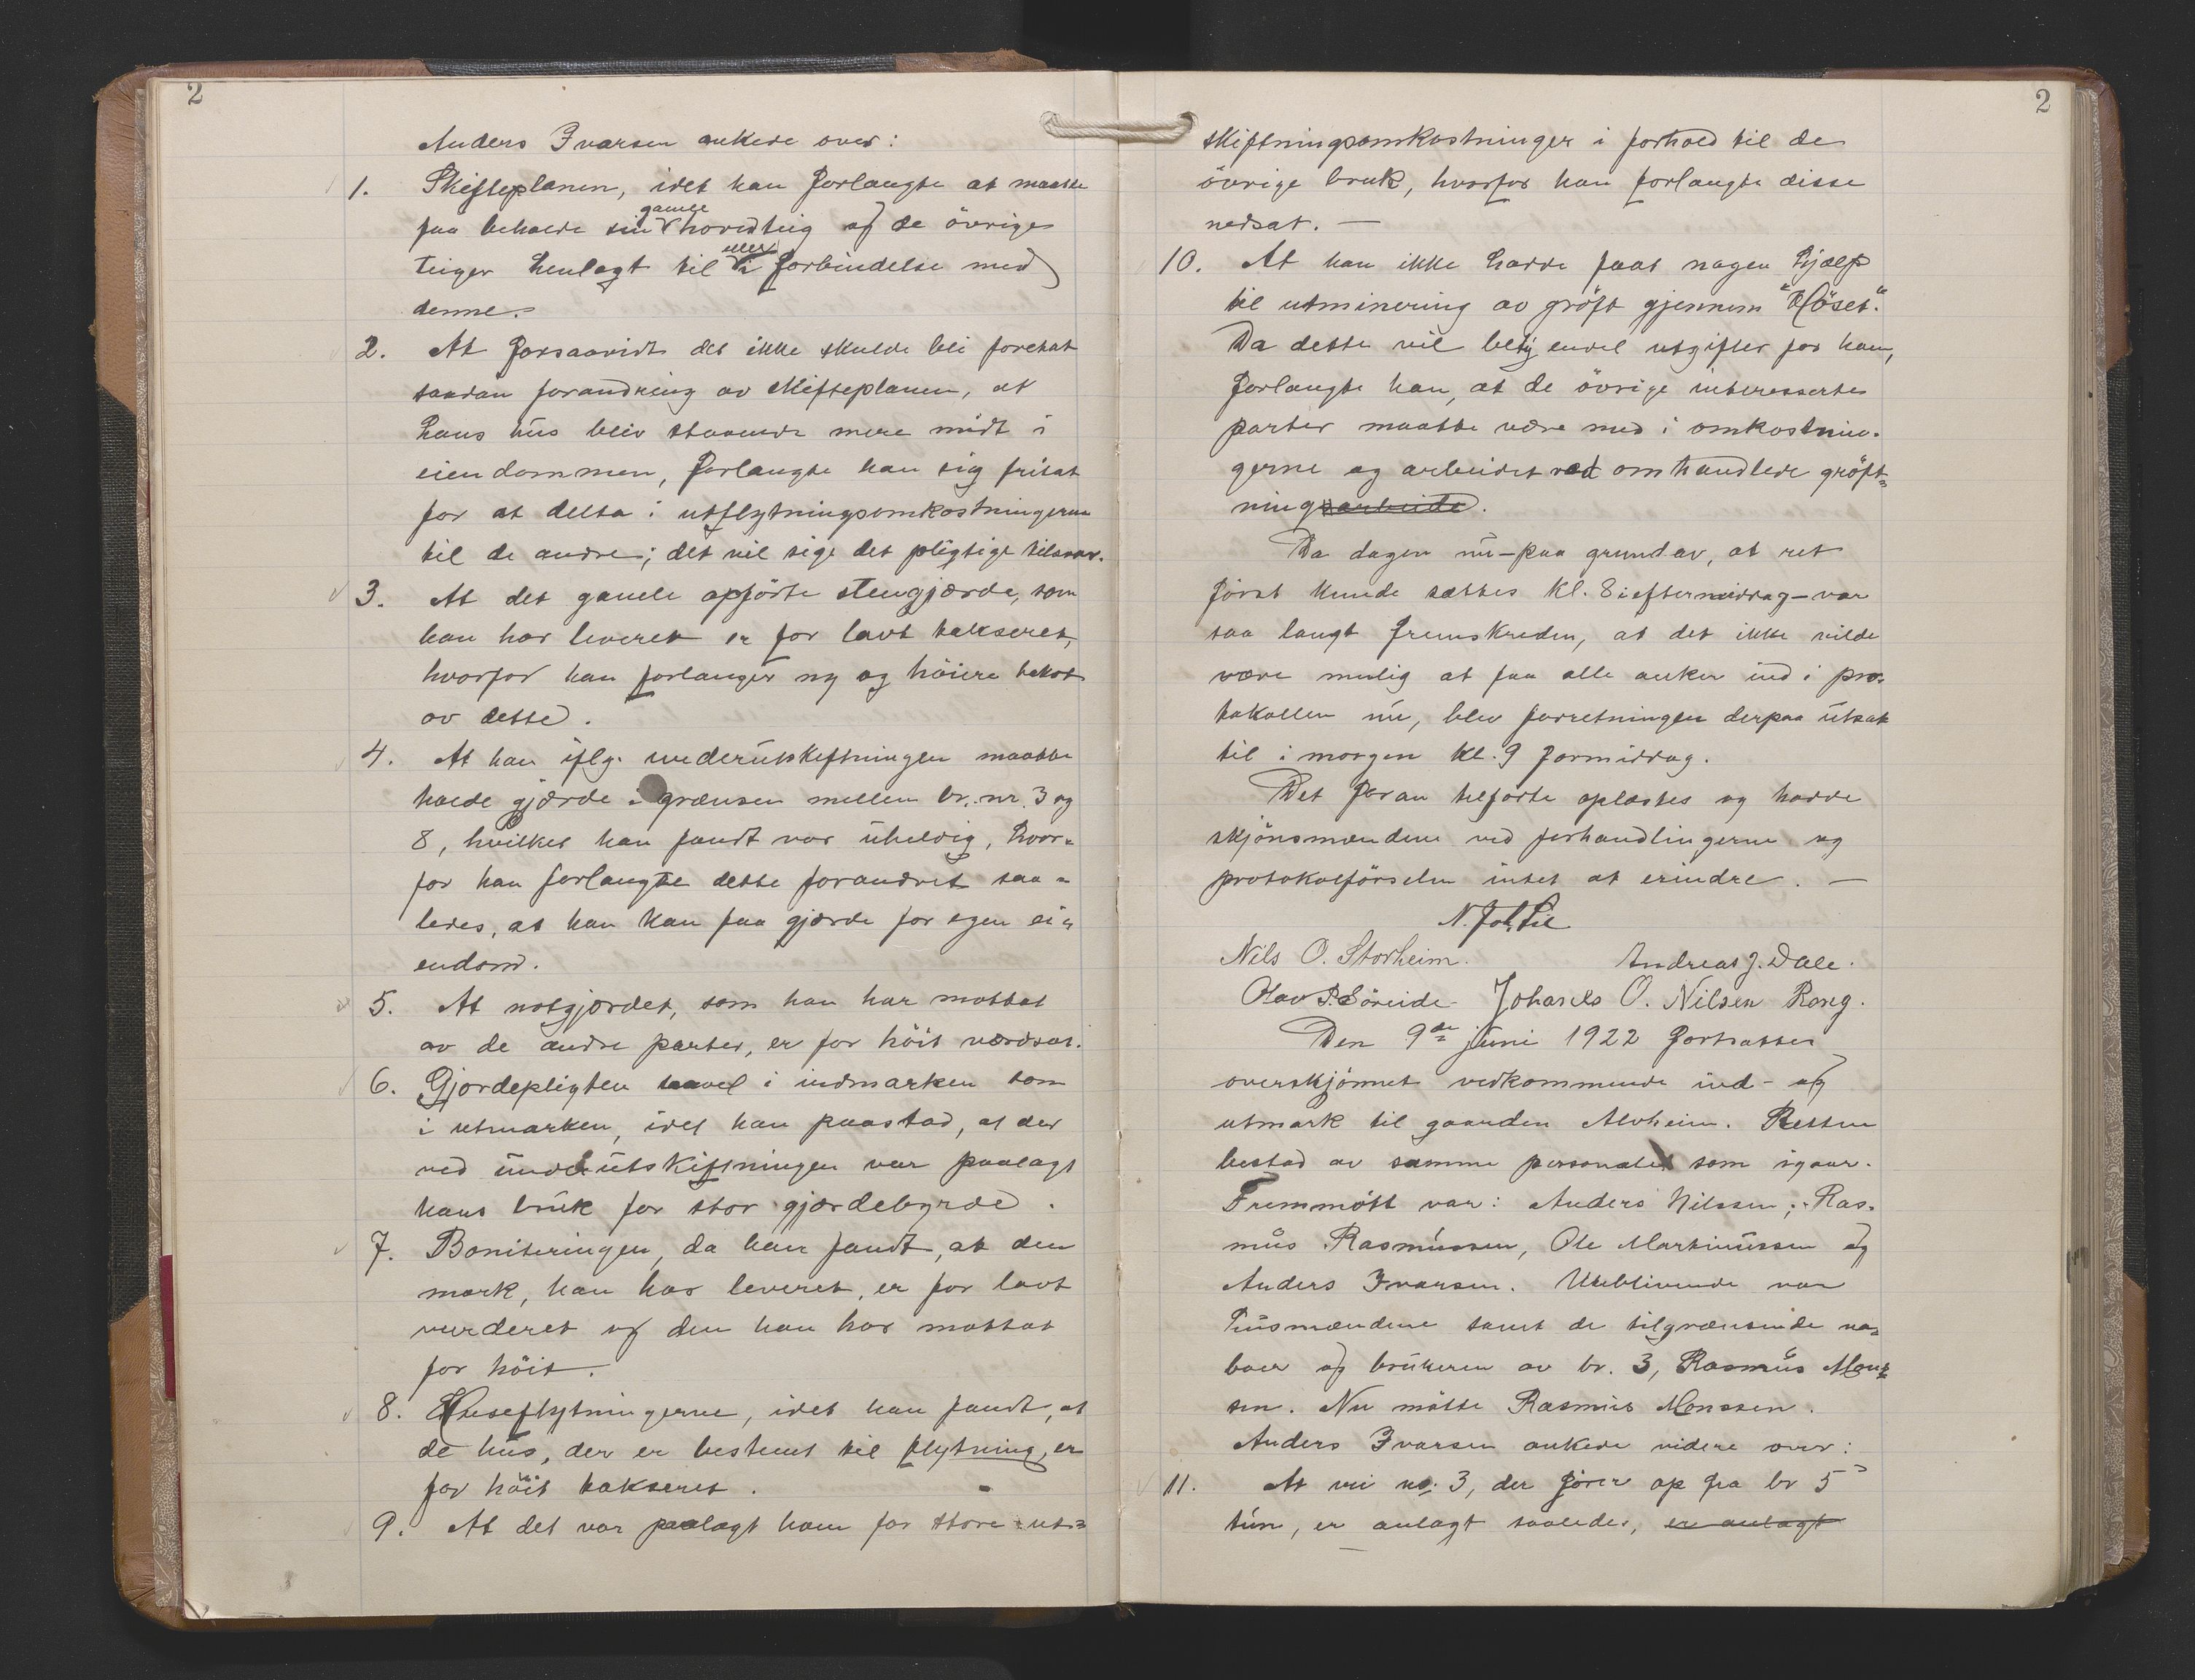 2
Anders Ivarsen ankede over:
1. Skifteplanen, idet han forlangte at maatte
faa beholde sin gamle hovedteig og de övrige
teiger henlagt til eller i forbindelse med
denne.
2. At forsaavidt det ikke skulde bli foretat
saadan forandring av skifteplanen, at
hans hus blev staaende mere midt i
eiendommen, forlangte han sig fritat
for at delta i utflytningsomkostningerne
til de andre; det vil sige det pligtige tilsvar.
3. At det gamle opförte stengjærde, som
han har leveret er for lavt takseret,
hvorfor han forlanger ny og höiere takst
av dette.
4. At han iflg. underutskiftningen maatte
holde gjærde i grænsen mellem br. nr. 3 og
8, hvilket han fandt var uheldig, hvor-
for han forlangte dette forandret saa-
ledes, at han kan faa gjærde for egen ei-
endom.
5. At notgjærdet, som han har mottat
av de andre parter, er for höit værdsat.
6. Gjærdepligten saavel i indmarken som
i utmarken, idet han paastod, at der
ved underutskiftningen var paalagt
hans bruk for stor gjærdebyrde.
7. Boniteringen, da han fandt, at den
mark, han har leveret, er for lavt
vurderet og den han har mottat
for höit.
8. Huseflytningerne, idet han fandt, at
de hus, der er bestemt til flytning, er
for höit takseret.
9. At det var paalagt ham for store ut-
2
skiftningsomkostninger i forhold til de
övrige bruk, hvorfor han forlangte disse
nedsat. —
10. At han ikke hadde faat nogen hjælp
til utminering av gröft gjennem "Höset."
Da dette vil bety endel utgifter for ham,
forlangte han, at de övrige interesserte
parter maatte være med i omkostnin-
gerne og arbeidet ved omhandlede gröft-
ningsarbeide.
Da dagen nu – paa grund av, at ret
först kunde sættes kl. 8 i eftermiddag – var
saa langt fremskreden, at det ikke vilde
være mulig at faa alle anker ind i pro-
tokollen nu, blev forretningen derpaa utsat
til i morgen kl. 9 formiddag.
Det foran tilförte oplæstes og hadde
skjönsmændene ved forhandlingerne og
protokolförselen intet at erindre. —
Nils O. Storheim. Andreas J. Dale.
Olav P. Söreide Johanes O. Nilsen Rong.
Den 9de juni 1922 fortsattes
overskjönnet vedkommende ind- og
utmark til gaarden Alvheim. Retten
bestod av samme personale som igaar.
Fremmött var: Anders Nilssen; Ras-
mus Rasmussen, Ole Martinussen og
Anders Ivarsen. Uteblivende var
husmændene samt de tilgrænsende na-
boer og brukeren av br. 3, Rasmus Mons-
sen. Nu mötte Rasmus Monssen.
Anders Ivarsen ankede videre over:
11. At vei no. 3, der förer op fra br 5
tun, er anlagt saaledes, er anlagt